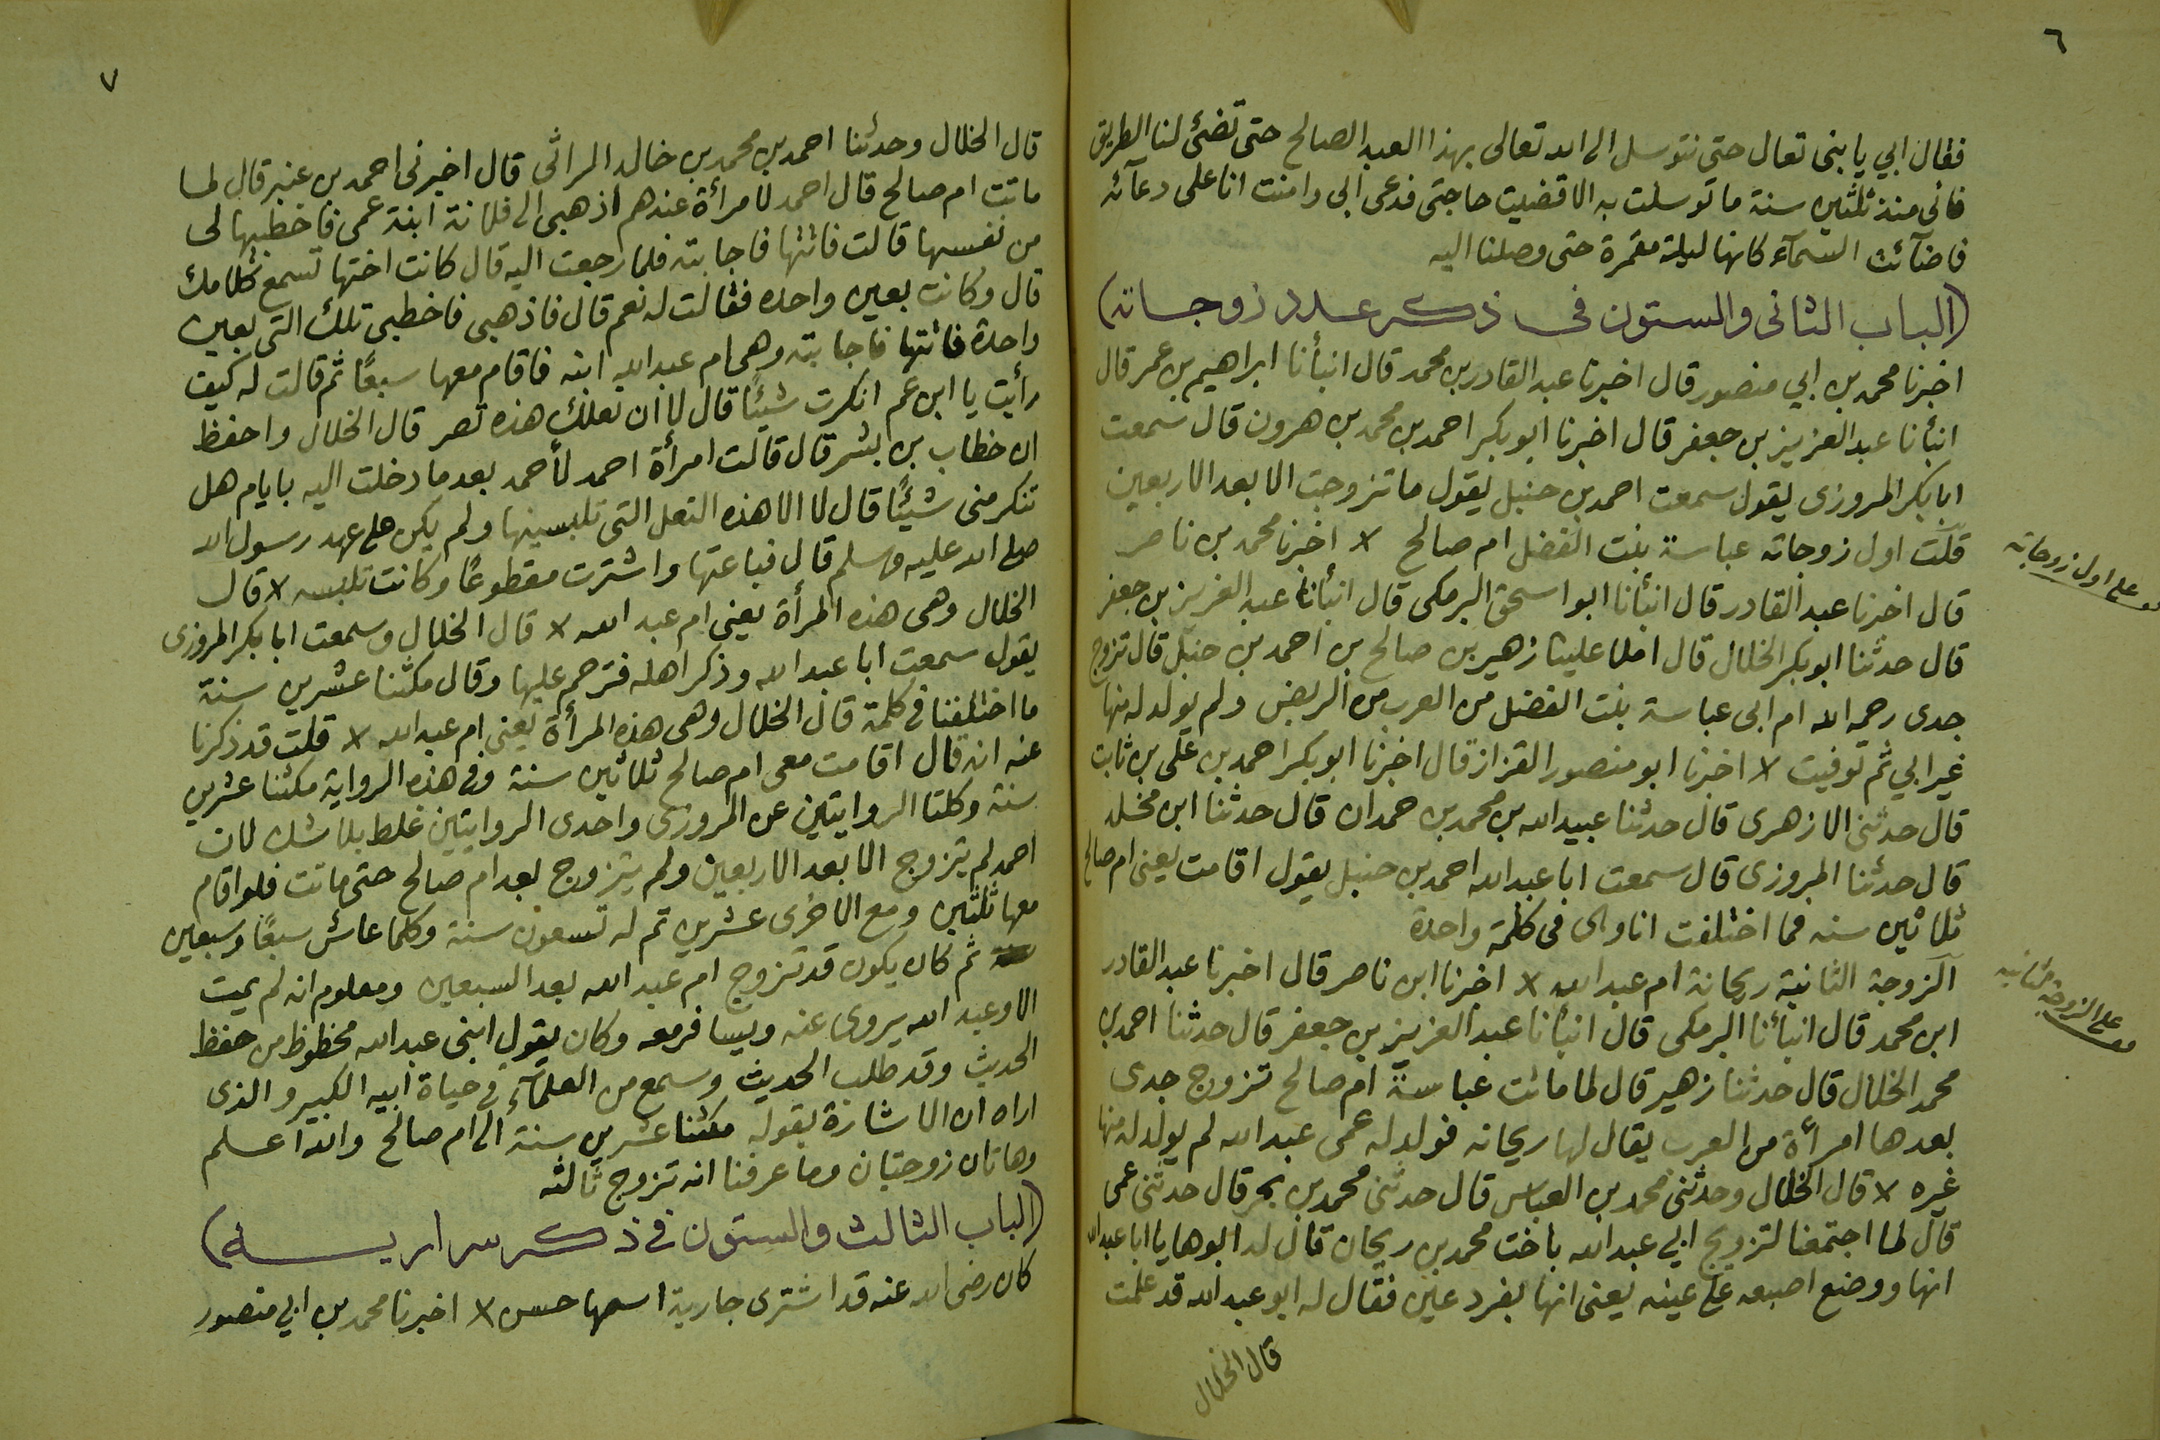 ٦
فقال ابي يا بنى تعال حتى نتوسل الى الله تعالى بهذا العبد الصالح حتى تضئ لنا الطريق
فانى منذ ثلثين سنة ما توسلت به الا قضيت حاجتى فدعى ابى وامنت انا على دعآئه
فاضآئت السمآء كانها ليلة مقمرة حتى وصلنا اليه
(الباب الثانى والستون فى ذكر عدد زوجاته)
اخبرنا محمد بن ابي منصور قال اخبرنا عبد القادر بن محمد قال انبأنا ابراهيم بن عمر قال
انبأنا عبد العزيز بن جعفر قال اخبرنا ابو بكر احمد بن محمد بن هرون قال سمعت
ابا بكر المروزى يقول سمعت احمد بن حنبل يقول ما تزوجت الا بعد الاربعين
قلت اول زوجاته عباسة بنت الفضل ام صالح × اخبرنا محمد بن ناصر
قال اخبرنا عبد القادر قال انبأنا ابو اسحق البرمكى قال انبأنا عبد العزيز بن جعفر
قال حدثنا ابو بكر الخلال قال املا علينا زهير بن صالح بن احمد بن حنبل قال تزوج
جدى رحمه الله ام ابى عباسة بنت الفضل من العرب من الربض ولم يولد له منها
غير ابي ثم توفيت × اخبرنا ابو منصور القزاز قال اخبرنا ابو بكر احمد بن على بن ثابت
قال حدثنى الازهرى قال حدثنا عبيد الله بن محمد بن حمدان قال حدثنا ابن مخلد
قال حدثنا المروزى قال سمعت ابا عبد الله احمد بن حنبل يقول اقامت يعنى ام صالح
ثلاثين سنه فما اختلفت انا وهى فى كلمة واحدة
الزوجة الثانية ريحانة ام عبد الله × اخبرنا ابن ناصر قال اخبرنا عبد القادر
ابن محمد قال انبأنا البرمكى قال انبأنا عبد العزيز بن جعفر قال حدثنا احمد بن
محمد الخلال قال حدثنا زهير قال لما ماتت عباسة ام صالح تزوج جدى
بعدها امرأة من العرب يقال لها ريحانه فولد له عمى عبد الله لم يولد له منها
غيره × قال الخلال وحدثنى محمد بن العباس قال حدثنى محمد بن بحر قال حدثنى عمى
قال لما اجتمعنا لتزويج ابي عبد الله باخت محمد بن ريحان قال له ابوها يا ابا عبد الله
انها ووضع اصبعه على عينه يعنى انها بفرد عين فقال له ابو عبد الله قد علمت
قال الخلال
على اول زوجاته
على الزوجة ثانيه
٧
قال الخلال وحدثنا احمد بن محمد بن خالد المراثى قال اخبرنى احمد بن عنبر قال لما
ماتت ام صالح قال احمد لامرأة عندهم اذهبى الى فلانة ابنة عمى فاخطبها لى
من نفسها قالت فاتتها فاجابته فلما رجعت اليه قال كانت اختها تسمع كلامك
قال وكانت بعين واحده فقالت له نعم قال فاذهبى فاخطبى تلك التى بعين
واحدة فاتتها فاجابته وهى ام عبد الله ابنه فاقام معها سبعًا ثم قالت له كيف
رأيت يا ابن عم انكرت شيئًا قال لا ان نعلك هذه تصر قال الخلال واحفظ
ان خطاب بن بشر قال قالت امرأة احمد لأحمد بعد ما دخلت اليه بايام هل
تنكر منى شيئًا قال لا الا هذه النعل التى تلبسينها ولم يكن على عهد رسول الله
صلى الله عليه وسلم قال فباعتها واشترت مقطوعًا وكانت تلبسه × قال
الخلال وهى هذه المرأة يعنى ام عبد الله × قال الخلال وسمعت ابا بكر المروزى
يقول سمعت ابا عبد الله وذكر اهله فترحم عليها وقال مكثنا عشرين سنة
ما اختلفنا فى كلمة قال الخلال وهى هذه المرأة يعنى ام عبد الله × قلت قد ذكرنا
عنه انه قال اقامت معى ام صالح ثلاثين سنة وفى هذه الرواية مكثنا عشرين
سنة وكلتا الروايتين عن المروزى واحدى الروايتين غلط بلا شك لان
احمد لم يتزوج الا بعد الاربعين ولم يتزوج بعد ام صالح حتى ماتت فلو اقام
معها ثلثين ومع الاخرى عشرين تم له تسعون سنة وكلما عاش سبعًا وسبعين
ثم كان يكون قد تزوج ام عبد الله بعد السبعين ومعلوم انه لم يمت
الا وعبد الله يروى عنه ويسافر معه وكان يقول ابنى عبد الله محظوظ من حفظ
الحديث وقد طلب الحديث وسمع من العلمآء فى حياة ابيه الكبير والذى
اراه ان الاشارة بقوله مكثنا عشرين سنة الى ام صالح والله اعلم
وهاتان زوجتان وما عرفنا انه تزوج ثالثه
(الباب الثالث والستون فى ذكر سراريه)
كان رضى الله عنه قد اشترى جارية اسمها حسن × اخبرنا محمد بن ابي منصور